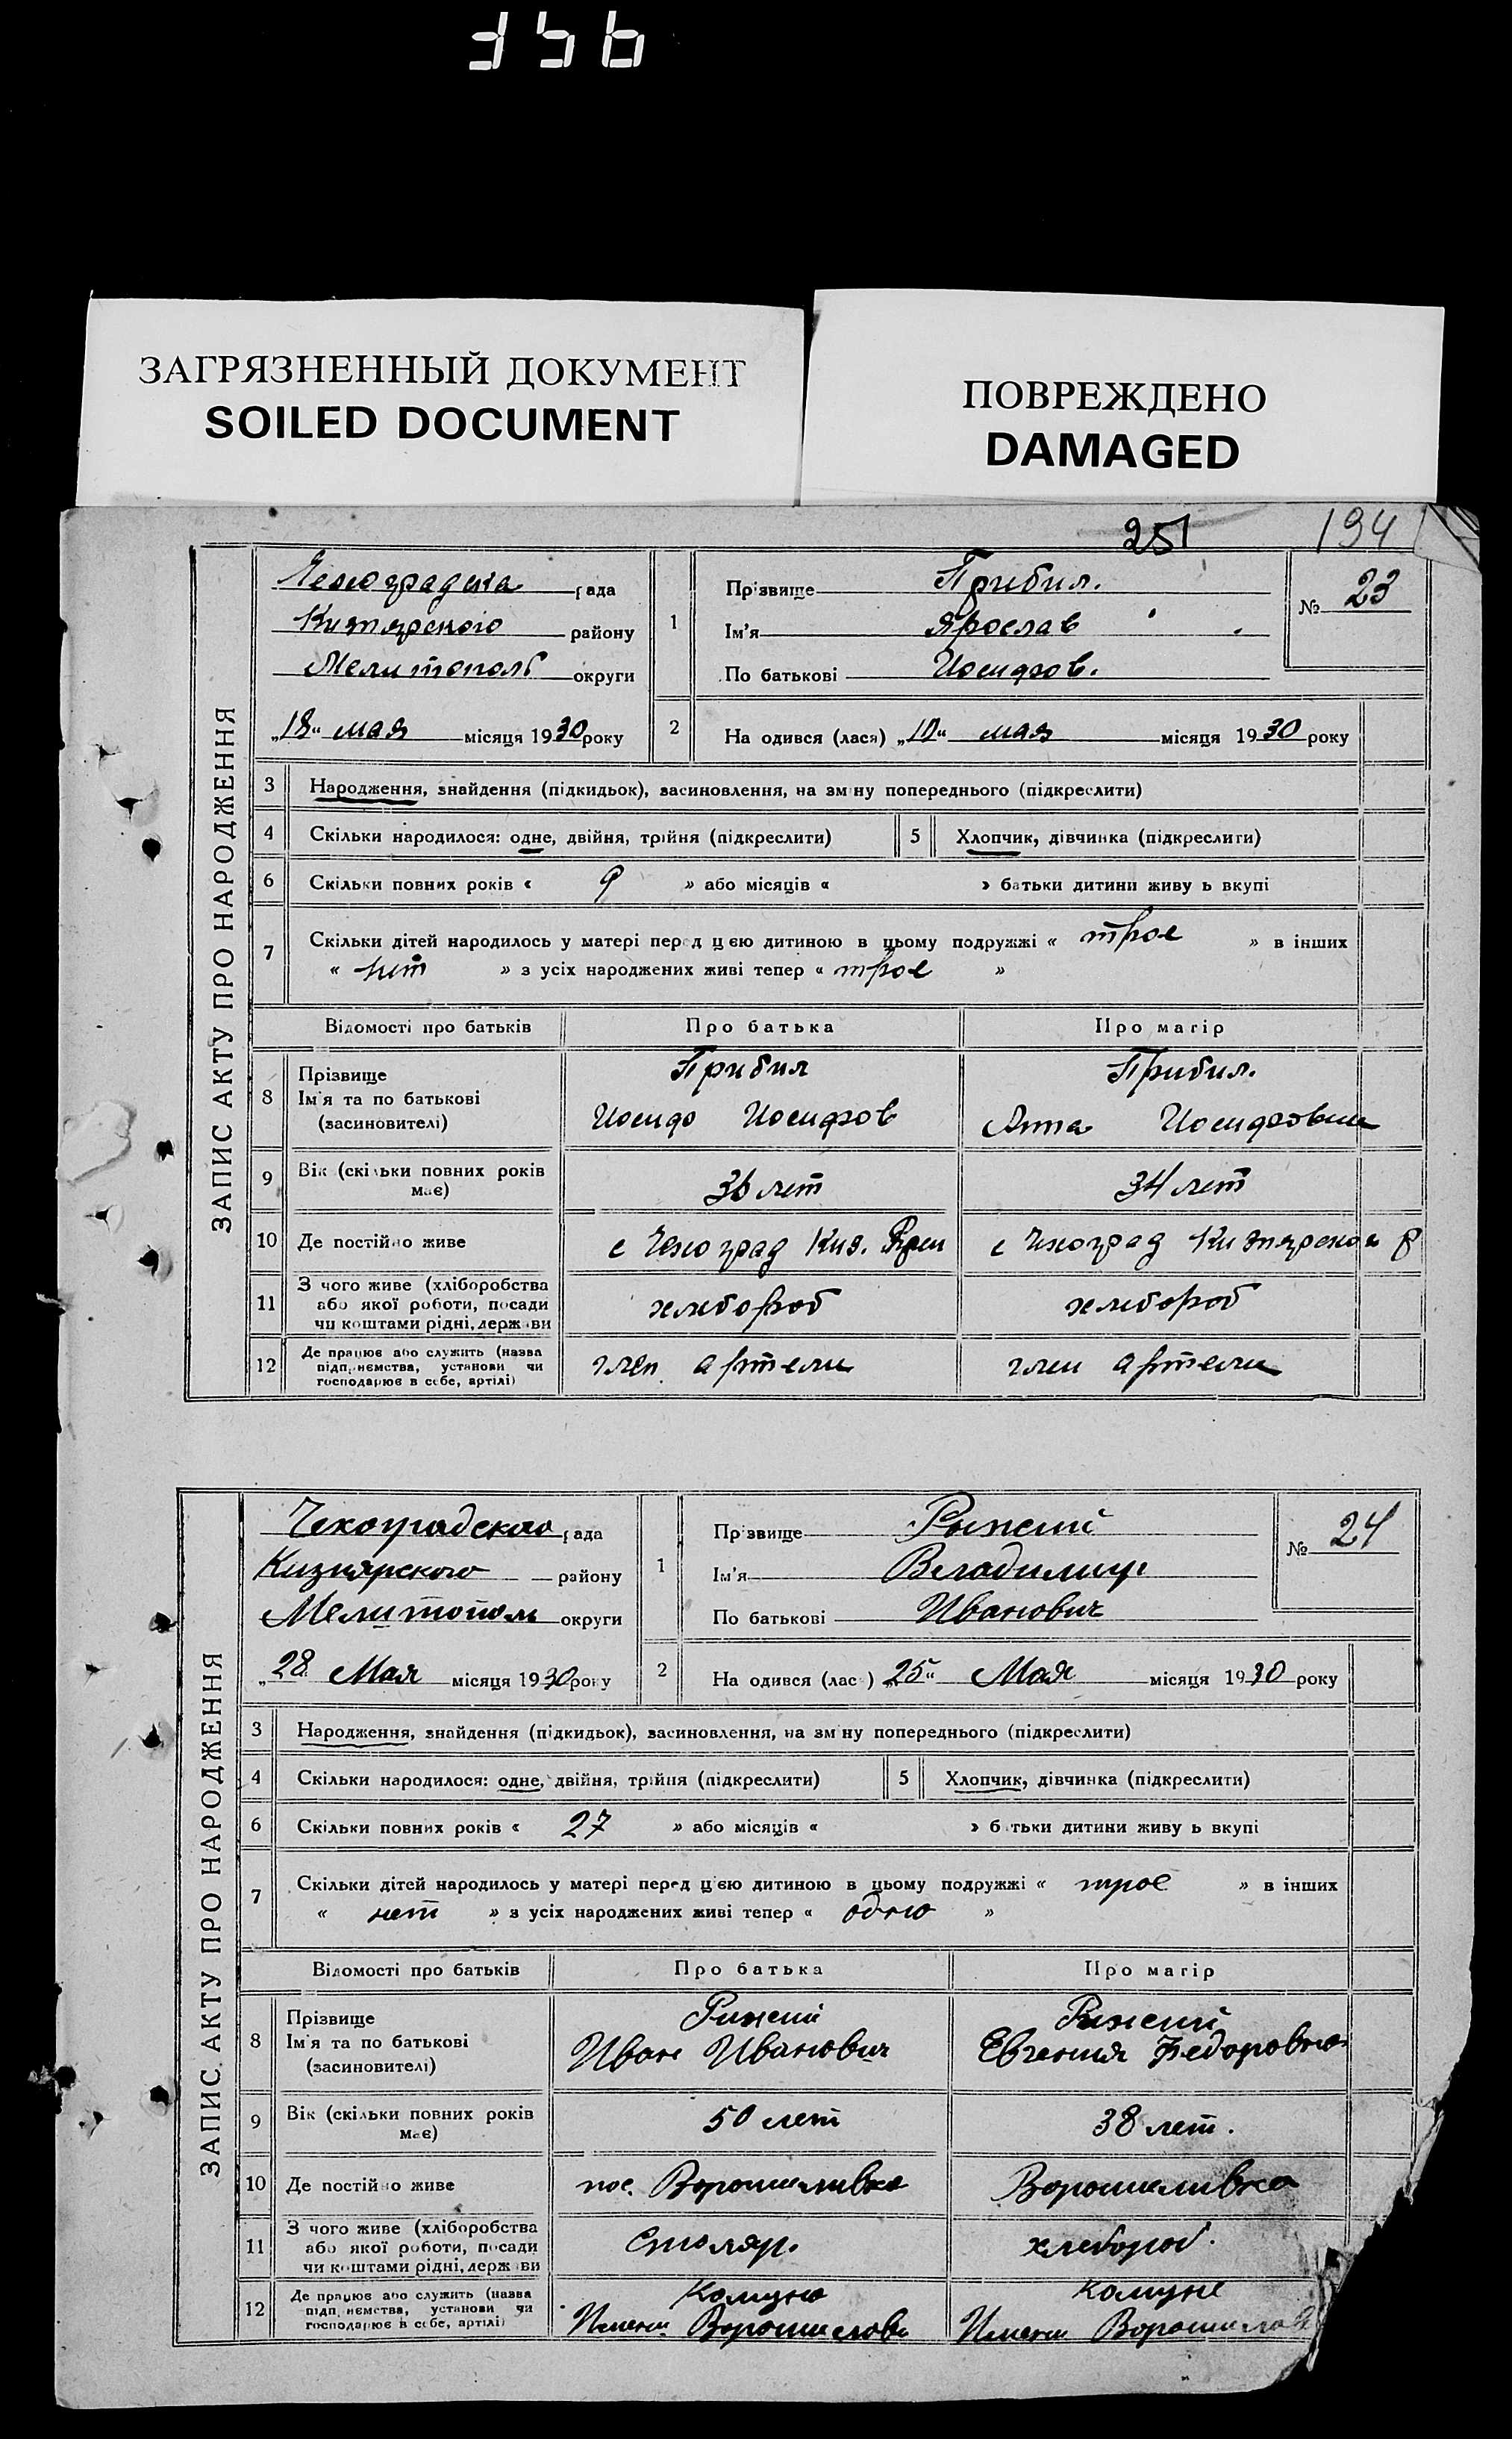 356
ЗАГРЯЗНЕННЫЙ ДОКУМЕНТ
SOILED DOCUMENT
ПОВРЕЖДЕНО
DAMAGED
251
194
ЗАПИС АКТУ ПРО НАРОДЖЕННЯ
рада
району
Мелитополь округи
„18“ мая місяця 1930 року
1
Прізвище Прибил.
Ім'я Ярослав
По батькові Иосифов.
№ 23
2 На одився (лася) „10“ мая місяця 1930 року
3 Народження, знайдення (підкидьок), васиновлення, на зміну попереднього (підкреслити)
4 Скільки народилося: одне, двійня, трійня (підкреслити) 5 Хлопчик, дівчинка (підкреслити)
6 Скільки повних років « 9 » або місяців « » батьки дитини живуть вкупі
7 Скільки дітей народилось у матері перед цією дитиною в цьому подружжі « трое » в інших
« нет » з усіх народжених живі тепер « трое »
Відомості про батьків Про батька Про матір
8 Прізвище Прибил Прибил.
Ім'я та по батькові Иосиф Иосифов Анна Иосифовна
(васиновителі)
9 Вік (скільки повних років має) 36 лет 34 лет
10 Де постійно живе с Чехоград Киз. с Чехоград Кизиярского р
11 З чого живе (хліборобства або якої роботи, посади чи коштами рідні, держави хлебороб хлебороб
12 Де працює або служить (назва підприємства, установи чи господарює в себе, артілі) член артели член артели
ЗАПИС АКТУ ПРО НАРОДЖЕННЯ
Чехоградского рада
Кизиярского району
Мелитополь округи
„28 Мая місяця 1930 року
1
Прізвище Рыжский
Ім'я Владимир
По батькові Иванович
№ 24
2 На одився (лас ) „25“ Мая місяця 1930 року
3 Народження, знайдення (підкидьок), васиновлення, на зміну попереднього (підкреслити)
4 Скільки народилося: одне, двійня, трійня (підкреслити) 5 Хлопчик, дівчинка (підкреслити)
6 Скільки повних років « 27 » або місяців « » батьки дитини живуть вкупі
7 Скільки дітей народилось у матері перед цією дитиною в цьому подружжі « трое » в інших
« нет » з усіх народжених живі тепер « одно »
Відомості про батьків Про батька Про матір
8 Прізвище
Ім'я та по батькові Иван Иванович Евгения Федоровна
(васиновителі)
9 Вік (скільки повних років має) 50 лет 38 лет.
10 Де постійно живе пос. Ворошиливка Ворошиливка
11 З чого живе (хліборобства або якої роботи, посади чи коштами рідні, держави Столяр. хлебороб.
12 Де працює або служить (назва підприємства, установи чи господарює в себе, артілі) Комуна Имени Ворошилова Комуне Имени Ворошилова